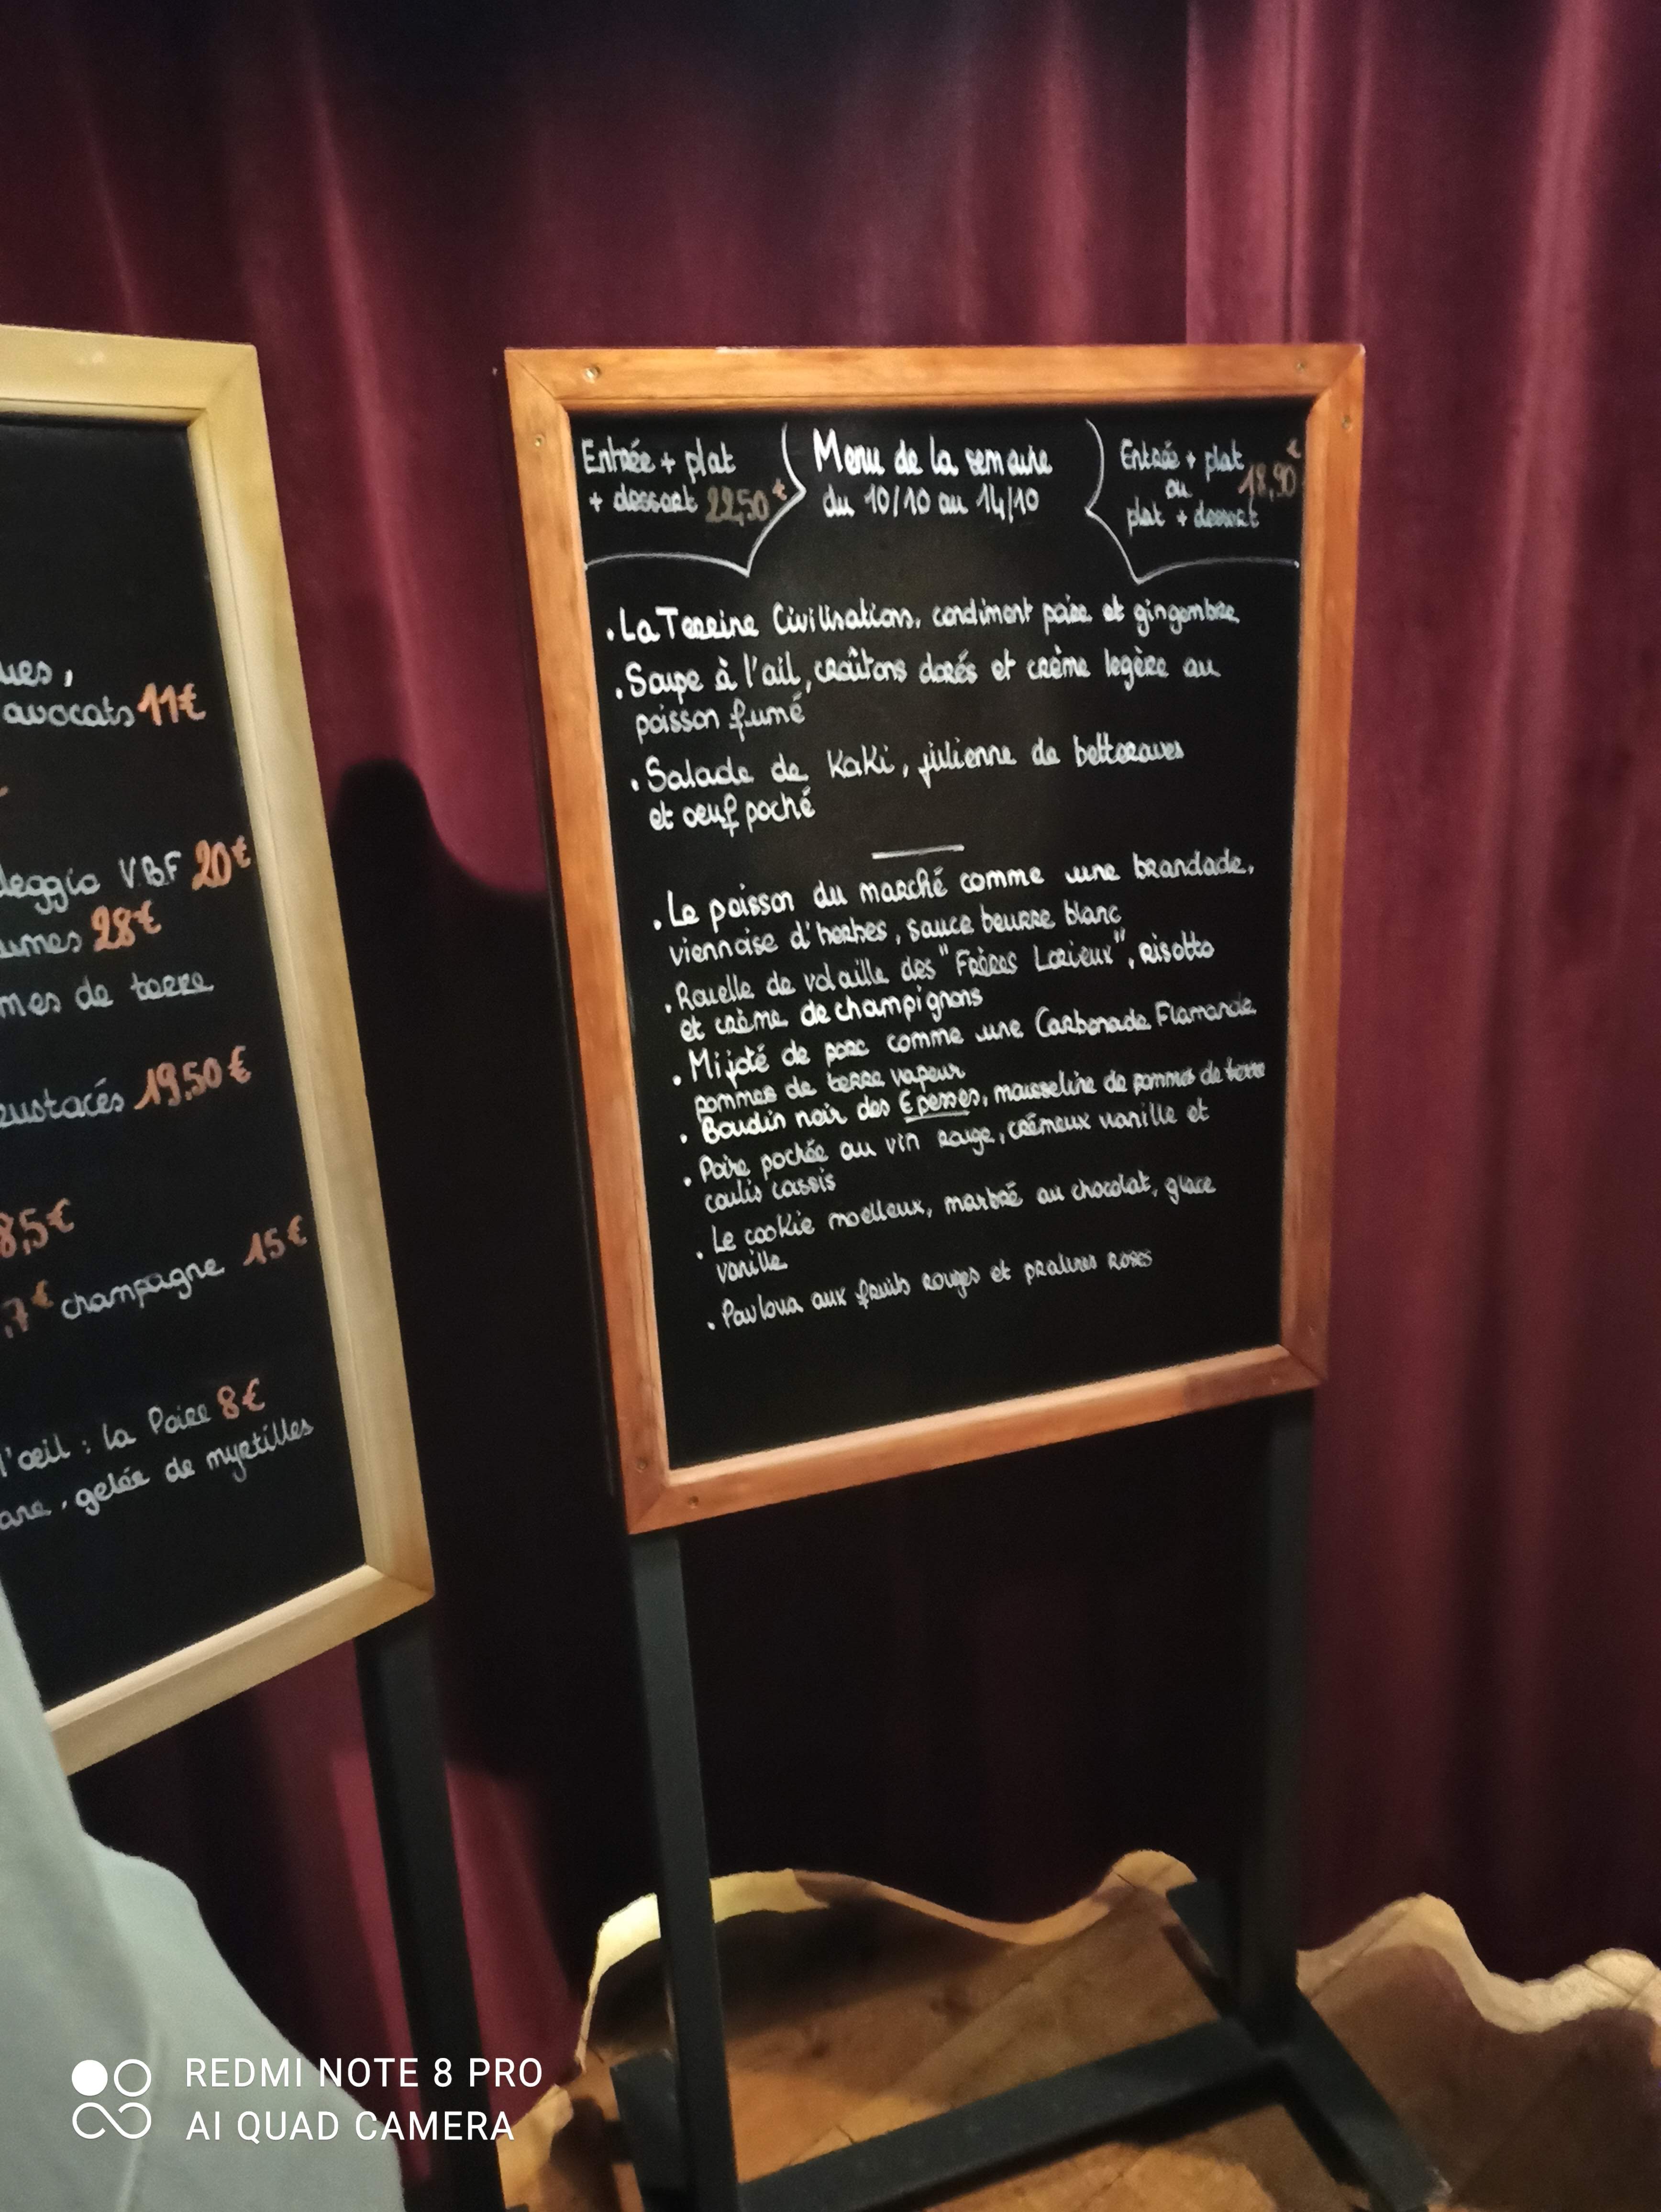 ues,
avocats 11€
leggio VBF 20€
umes 28€
mes de terre
rustacés 19,50€
8,5€
,7€ champagne 15€
l'œil : la Poire 8€
ane, gelée de myrtilles
Entrée + plat
+ dessert 22,50€
Menu de la semaine
du 10/10 au 14/10
Entrée + plat
ou 18,90€
plat + dessert
. La Terrine Civilisations, condiment poire et gingembre
. Soupe à l'ail, croûtons dorés et crème legère au
poisson fumé
. Salade de Kaki, julienne de betteraves
et oeuf poché
. Le poisson du marché comme une brandade,
viennoise d'herbes, sauce beurre blanc
. Rouelle de volaille des "Frères Lorieux", risotto
et crème de champignons
. Mijoté de porc comme une Carbonade Flamande
pommes de terre vapeur
. Boudin noir des Epesses, mousseline de pommes de terre
. Poire pochée au vin rouge, crémeux vanille et
coulis cassis
. Le cookie moelleux, marbré au chocolat, glace
vanille
. Pavlova aux fruits rouges et pralines roses
REDMI NOTE 8 PRO
AI QUAD CAMERA